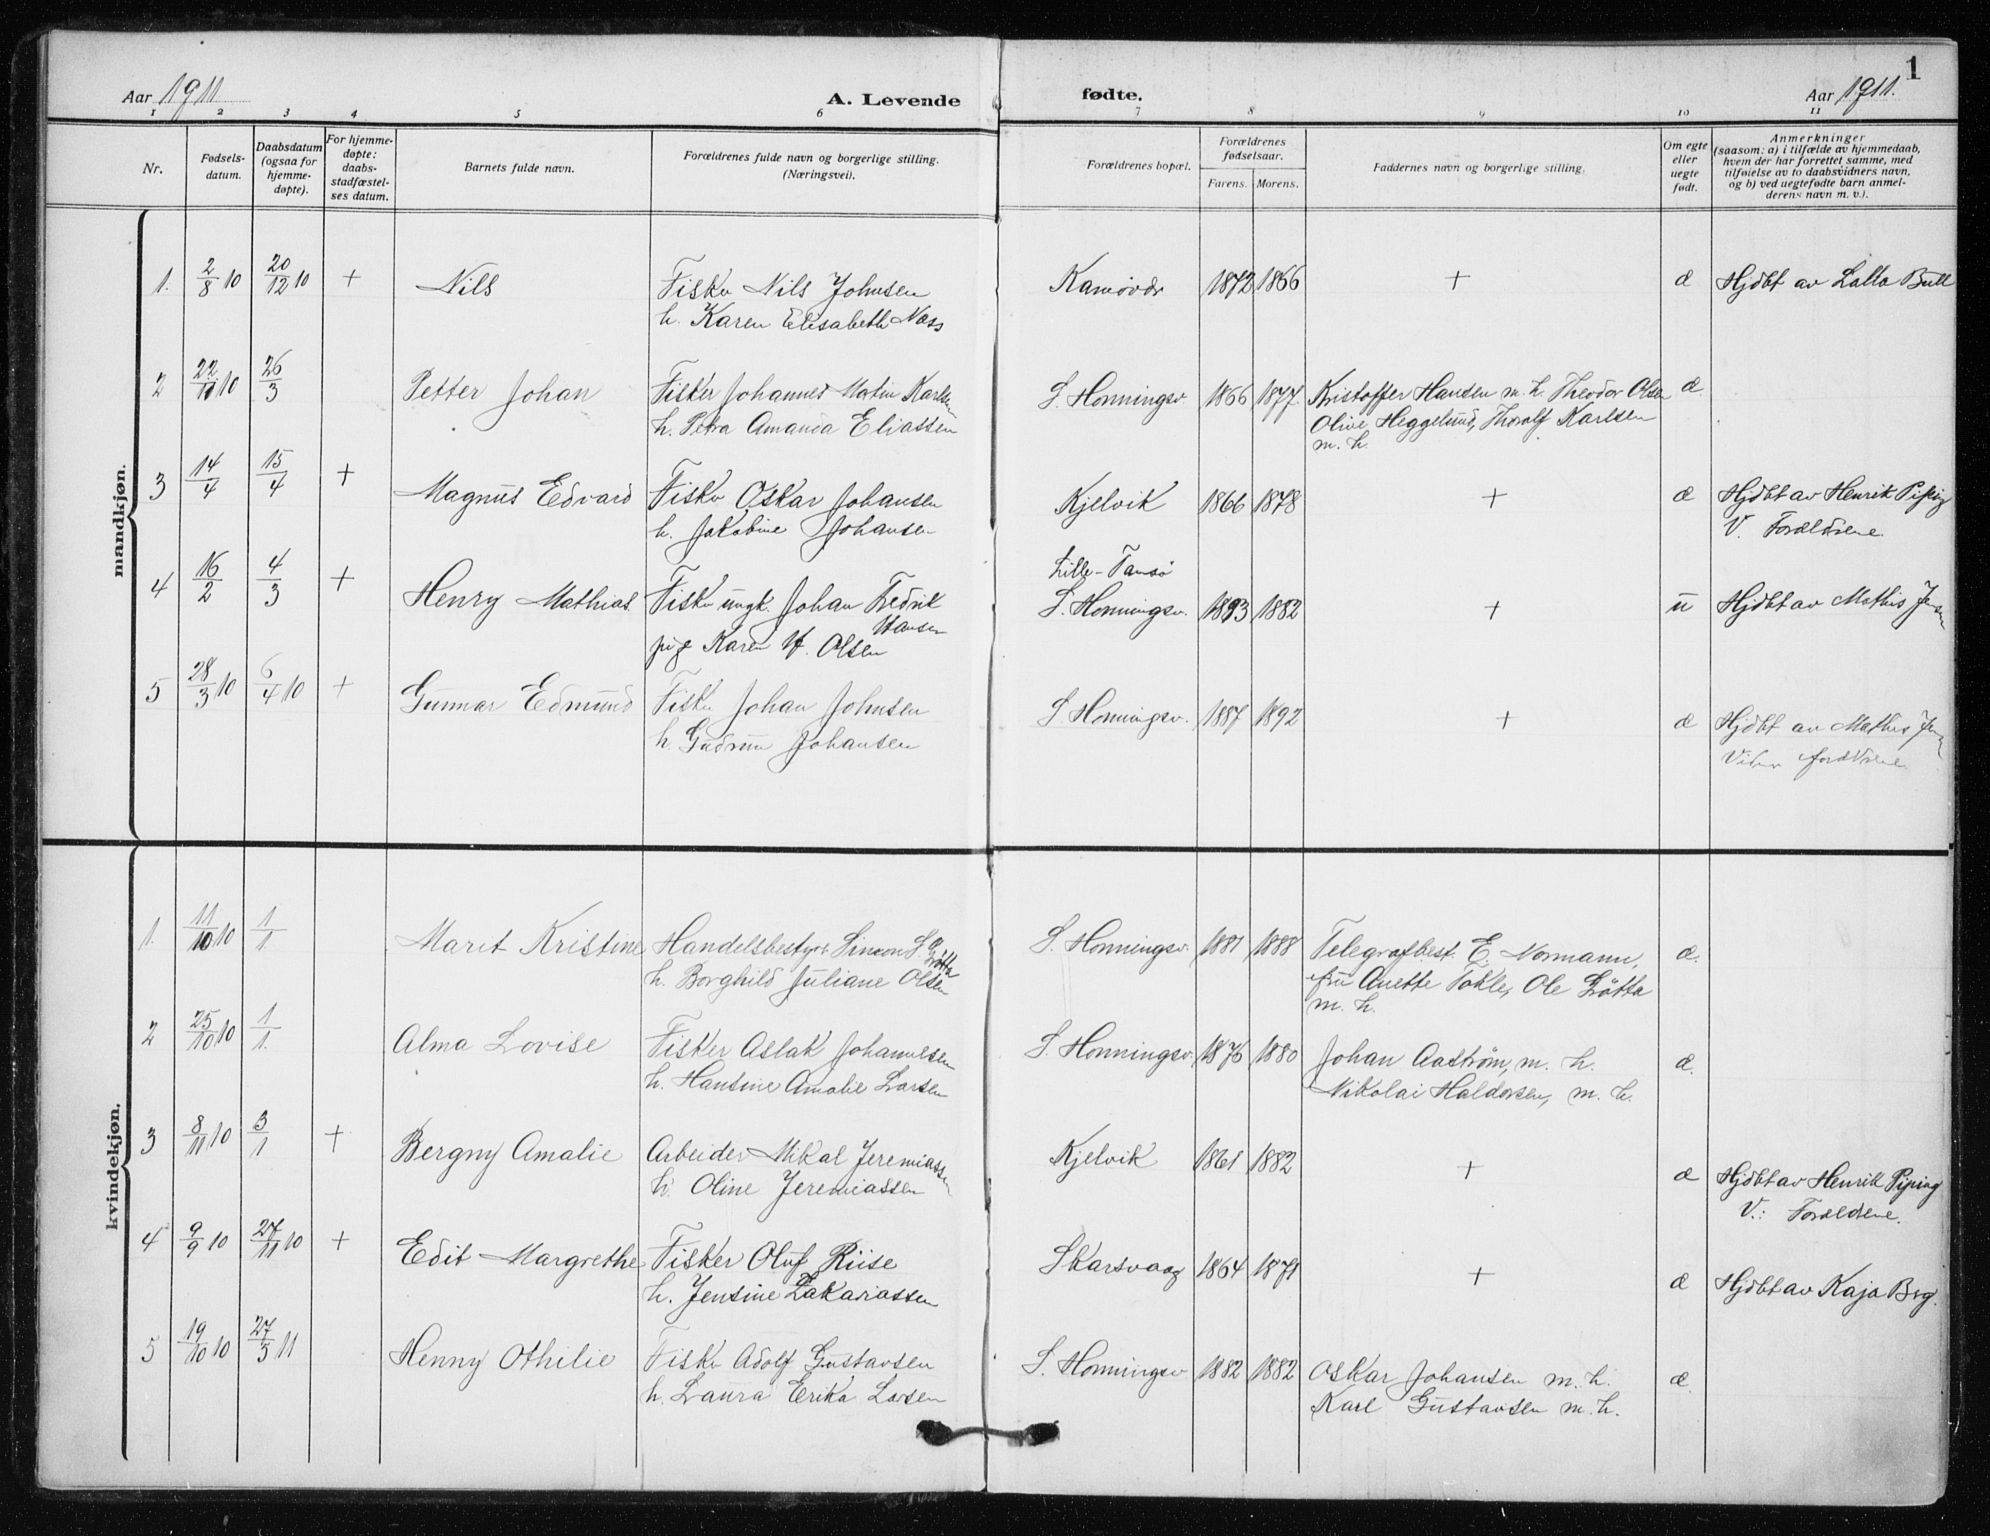 1
Aar 1911. A. Levende fødte. Aar 1911.
1 2 3 4 5 6 7 8 9 10 11
Nr.
Fødsels-
datum.
Daabsdatum
(ogsaa for
hjemme-
døpte).
For hjemme-
døpte:
daabs-
stadfæstel-
ses datum.
Barnets fulde navn.
Forældrenes fulde navn og borgerlige stilling.
(Næringsvei).
Forældrenes bopæl.
Forældrenes
fødselsaar.
Farens. Morens.
Faddernes navn og borgerlige stilling.
Om egte
eller
uegte
født.
Anmerkninger
(saasom: a) i tilfælde av hjemmedaab,
hvem der har forrettet samme, med
tilføielse av to daabsvidners navn,
og b) ved uegtefødte barn anmel-
derens navn m. v.).
mandkjøn.
1. 2/8 10 20/12 10 + Nils Fisker Nils Johnsen Kamøvær 1872 1866 + æ Hjdbt av Lalla Bull
h. Karen Elisabeth Næss
2 22/10 10 26/3 Petter Johan Fisker Johannes Martin Karlsen S. Honningsv. 1866 1877. Kristoffer Hansen m. h. Theodor Olsen æ.
h. Petra Amanda Eliassen Olive Heggelund, Thoralf Karlsen
m. h.
3 14/4 15/4 + Magnus Edvard Fisker Oskar Johansen Kjelvik 1866 1878 + æ Hjdbt av Henrik Piping
h. Jakobine Johansen V. Forældrene
Lille-Tamsø
4 16/2 4/3 + Henry Mathias. Fisker ungk. Johan Fredrik Hansen S. Honningsv. 1893 1882 + u Hjdbt av Mathis Jensen
pige Karen H. Olsen
5 28/3 10 6/4 10 + Gunnar Edmund Fisker Johan Johnsen S. Honningsv. 1887 1892 + æ Hjdbt av Mathis Jensen
h. Gudrun Johansen forældrene
kvindekjøn.
1. 11/10 10 1/1 Marit Kristine Handelsbestyrer Simon S. Grøtta S. Honningsv. 1881 1888 Telegrafbest. E. Normann, æ.
h. Borghild Juliane Olsen fru Anette Tokle, Ole Grøtta
m. h.
2 25/10 10 1/1. Alma Lovise Fisker Aslak Johannesen S. Honningsv. 1876 1880 Johan Aastrøm, m. h. æ.
h. Hansine Amalie Larsen Nikolai Haldorsen, m. h.
3 8/11 10 3/1 + Bergny Amalie Arbeider Mikal Jeremiassen Kjelvik 1861 1882 + æ Hjdbt av Henrik Piping
h. Oline Jeremiassen V.: Forældrene.
4 9/9 10 27/11 10 + Edit Margrethe Fisker Oluf Riise Skarsvaag 1864 1871 + æ Hjdbt av Kaja Berg.
h. Jensine Zakariassen
5 19/10 10 27/3 11 Henny Othilie Fisker Adolf Gustavsen S. Honningsv 1882 1882 Oskar Johansen m. h. æ.
h. Laura Erika Larsen Karl Gustavsen m. h.